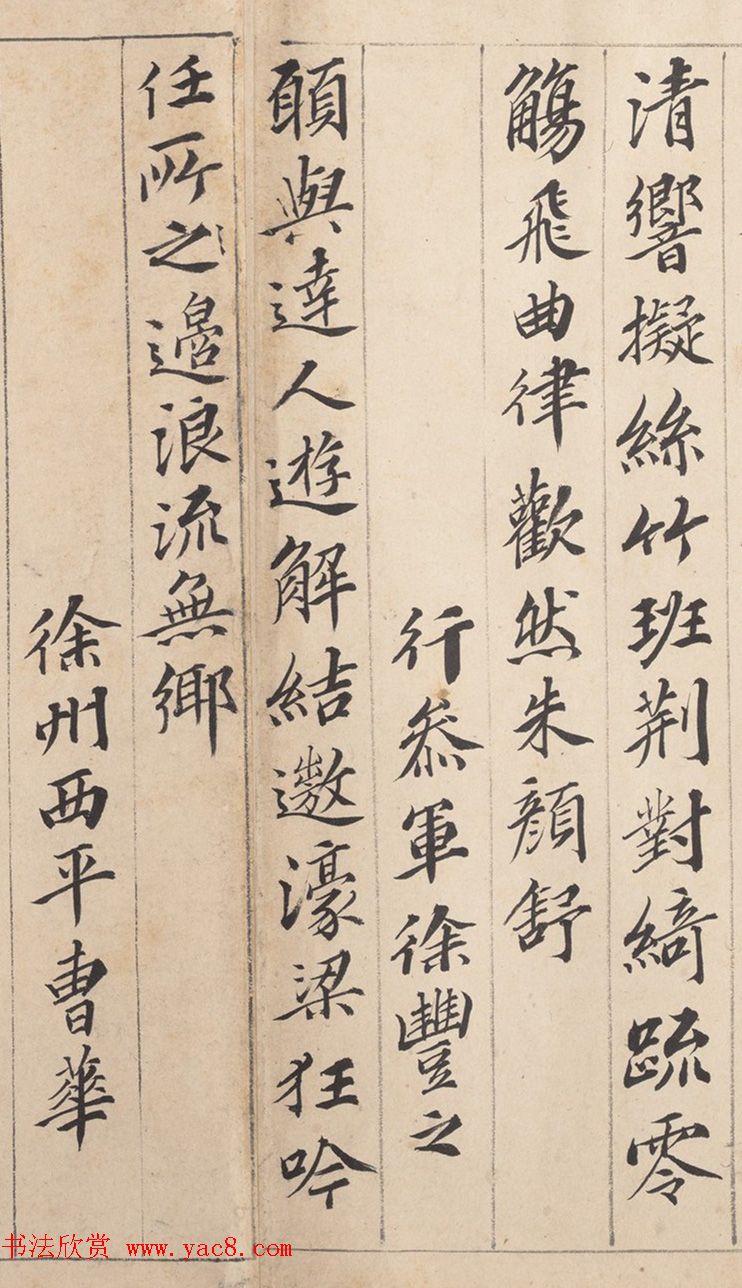 清響擬絲竹班荆對綺疏零
觴飛曲律歡然朱顔舒
行叅軍徐豐之
願與達人遊解結遨濠梁狂吟
任所之邉浪流無鄉
徐州西平曹華
书法欣赏 www.yac8.com